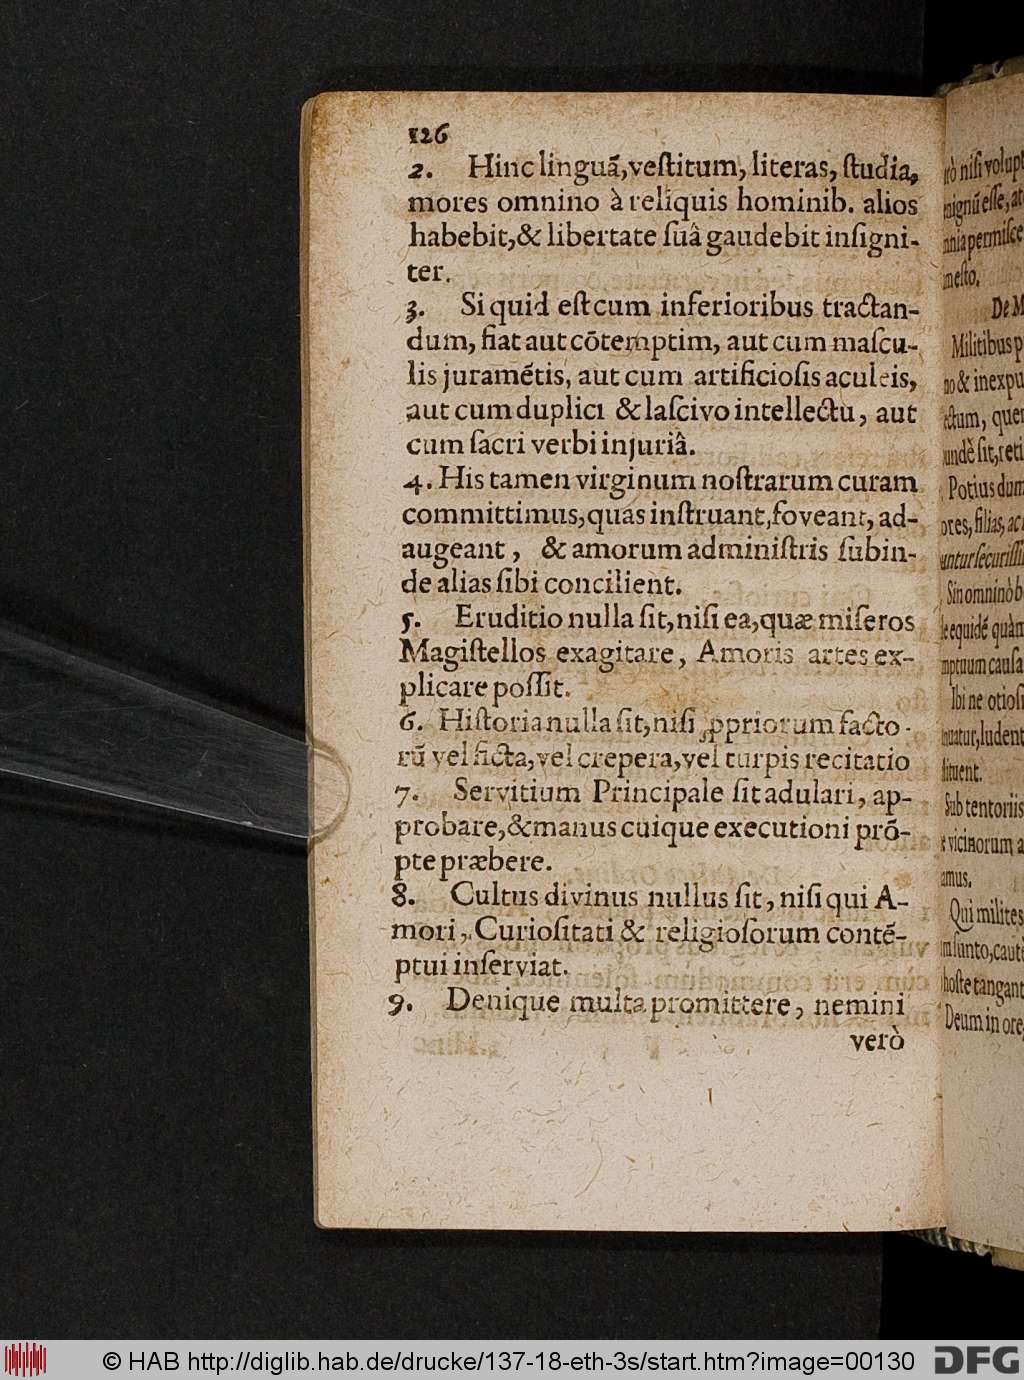 126
2. Hinc linguā,veſtitum, literas, ſtudia,
mores omnino à reliquis hominib. alios
habebit,& libertate ſuâ gaudebit inſigni-
ter.
3. Si quid eſt cum inferioribus tractan-
dum, fiat aut cōtemptim, aut cum maſcu-
lis juramētis, aut cum artificioſis aculeis,
aut cum duplici & laſcivo intellectu, aut
cum ſacri verbi injuriâ.
4. His tamen virginum noſtrarum curam
committimus,quas inſtruant,foveant, ad-
augeant, & amorum adminiſtris ſubin-
de alias ſibi concilient.
5. Eruditio nulla ſit,niſi ea,quæ miſeros
Magiſtellos exagitare, Amoris artes ex-
plicare poſſit.
6. Hiſtoria nulla ſit,niſi ꝓpriorum facto-
rū vel ficta,vel crepera,vel turpis recitatio
7. Servitium Principale ſit adulari, ap-
probare,& manus cuique executioni prō-
pte præbere.
8. Cultus divinus nullus ſit, niſi qui A-
mori, Curioſitati & religioſorum contē-
ptui inſerviat.
9. Denique multa promittere, nemini
verò
rò niſi volupt
eſſe, at
permiſce
De M
Militibus p
& inexpu
quer
ſit, reti
Potius dum
filias, ac
Sin omninò b
quàm
cauſa
Ibi ne otioſi
ludent
Sub tentoriis
vicinorum a
amus.
Qui milites
ſunto, cautè
hoſte tangant
Deum in ore,
© HAB http://diglib.hab.de/drucke/137-18-eth-3s/start.htm?image=00130
DFG